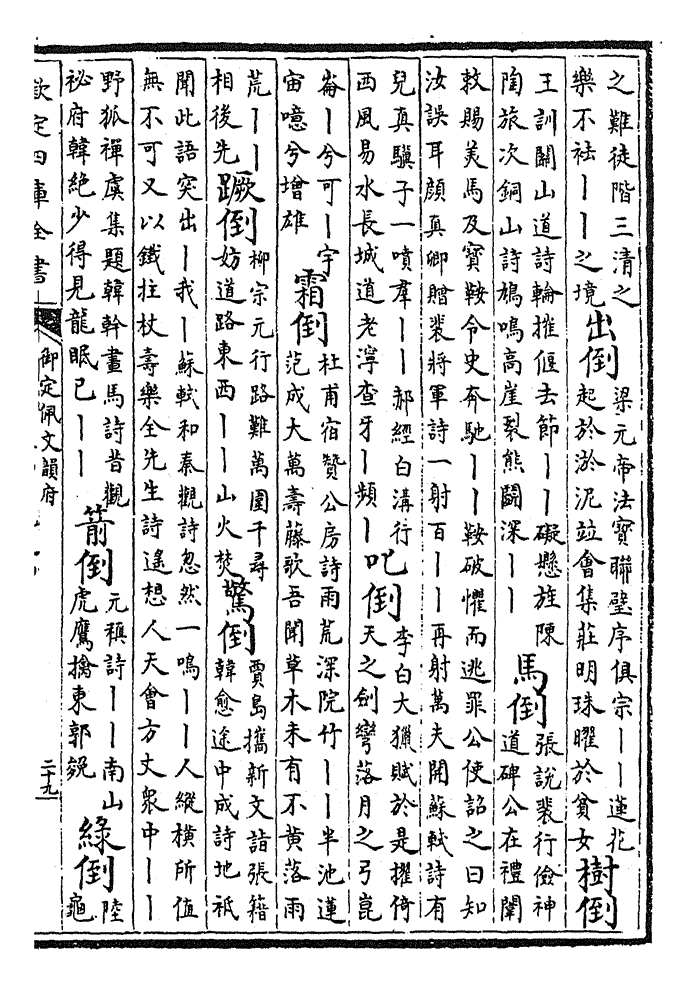 之難徒階三清之
樂不袪丨丨之境
出倒
梁元帝法寶聯璧序俱宗丨丨蓮花
起於淤泥竝會集莊明珠曜於貧女
樹倒
王訓關山道詩輪摧偃去節丨丨礙懸旌陳
陶旅次銅山詩鳩鳴高崖裂熊鬬深丨丨
馬倒
張說裴行儉神
道碑公在禮闈
敕賜羙馬及寶鞍令史奔馳丨丨鞍破懼而逃罪公使詔之曰知
汝誤耳顏真卿贈裴將軍詩一射百丨丨再射萬夫開蘇軾詩有
兒真驥子一噴羣丨丨郝經白溝行
西風易水長城道老濘查牙丨頻丨
叱倒
李白大獵賦於是擢倚
天之劍彎落月之弓崑
崙丨兮可丨宇
宙噫兮增雄
霜倒
杜甫宿贊公房詩雨荒深院竹丨丨半池蓮
范成大萬壽藤歌吾聞草木未有不黄落雨
荒丨丨
相後先
蹶倒
柳宗元行路難萬圍千尋
妨道路東西丨丨山火焚
驚倒
賈島攜新文詣張籍
韓愈途中成詩地祇
聞此語突出丨我丨蘇軾和秦觀詩忽然一鳴丨丨人縱橫所值
無不可又以鐵拄杖壽樂全先生詩遙想人天會方丈衆中丨丨
野狐禪虞集題韓幹畫馬詩昔觀
祕府韓絶少得見龍眠已丨丨
箭倒
元稹詩丨丨南山
虎鷹擒東郭㕙
綠倒
陸
龜
欽定四庫全書
御定佩文韻府
二十九